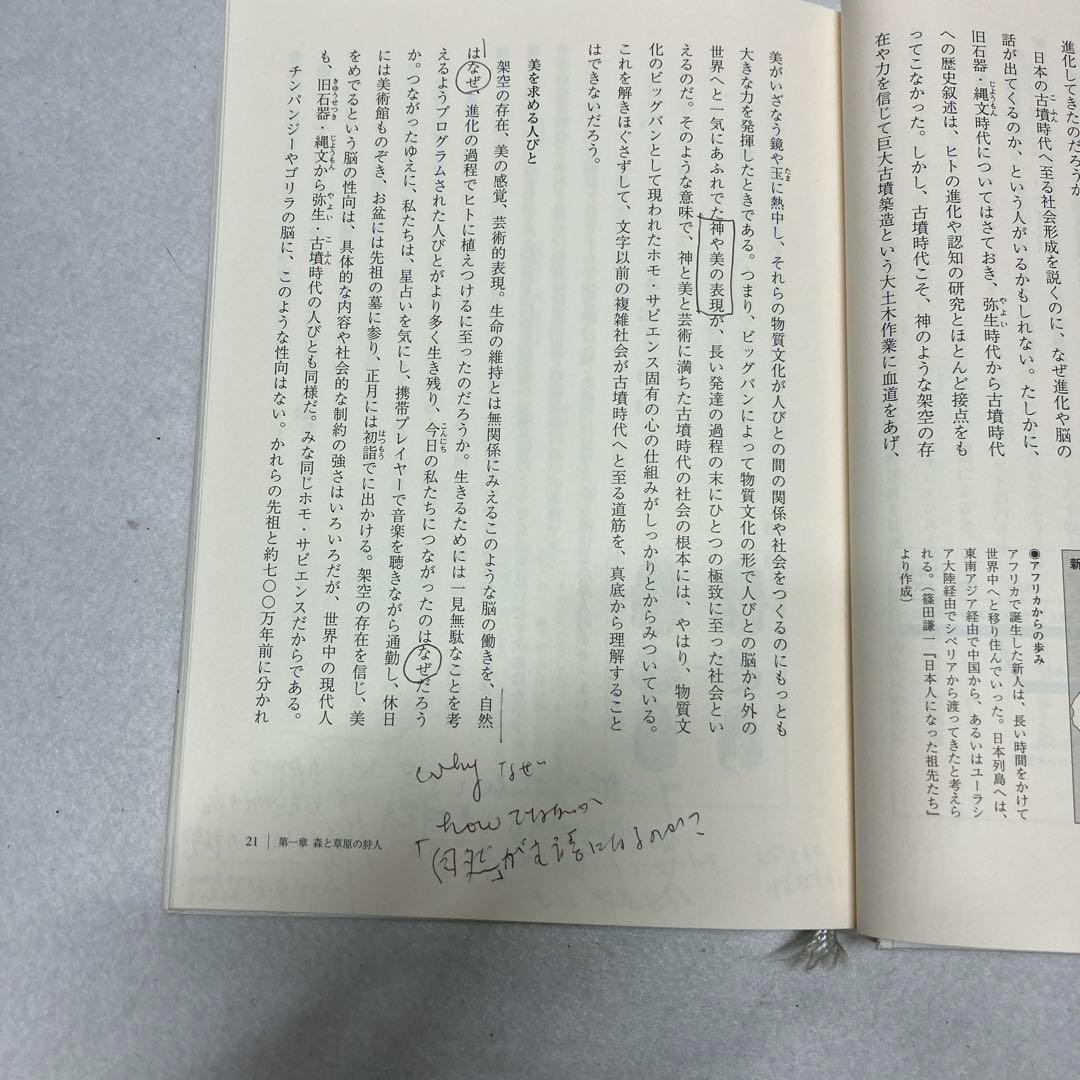 進化してきたのだろうか
日本の古墳時代へ至る社会形成を説くのに、なぜ進化や脳の
話が出てくるのか、という人がいるかもしれない。たしかに、
旧石器・縄文時代についてはさておき、弥生時代から古墳時代
への歴史叙述は、ヒトの進化や認知の研究とほとんど接点をも
ってこなかった。しかし、古墳時代こそ、神のような架空の存
在や力を信じて巨大古墳築造という大土木作業に血道をあげ、
新
●アフリカからの歩み
アフリカで誕生した新人は、長い時間をかけて
世界中へと移り住んでいった。日本列島へは、
東南アジア経由で中国から、あるいはユーラシ
ア大陸経由でシベリアから渡ってきたと考えら
れる。（篠田謙一『日本人になった祖先たち』
より作成）
美がいざなう鏡や玉に熱中し、それらの物質文化が人びとの間の関係や社会をつくるのにもっとも
大きな力を発揮したときである。つまり、ビッグバンによって物質文化の形で人びとの脳から外の
世界へと一気にあふれでた神や美の表現が、長い発達の過程の末にひとつの極致に至った社会とい
えるのだ。そのような意味で、神と美と芸術に満ちた古墳時代の社会の根本には、やはり、物質文
化のビッグバンとして現われたホモ・サピエンス固有の心の仕組みがしっかりとからみついている。
これを解きほぐさずして、文字以前の複雑社会が古墳時代へと至る道筋を、真底から理解すること
はできないだろう。
美を求める人びと
架空の存在、美の感覚、芸術的表現。生命の維持とは無関係にみえるこのような脳の働きを、自然
はなぜ、進化の過程でヒトに植えつけるに至ったのだろうか。生きるためには一見無駄なことを考
えるようプログラムされた人びとがより多く生き残り、今日の私たちにつながったのはなぜだろう
か。つながったゆえに、私たちは、星占いを気にし、携帯プレイヤーで音楽を聴きながら通勤し、休日
には美術館ものぞき、お盆には先祖の墓に参り、正月には初詣でに出かける。架空の存在を信じ、美
をめでるという脳の性向は、具体的な内容や社会的な制約の強さはいろいろだが、世界中の現代人
も、旧石器・縄文から弥生・古墳時代の人びとも同様だ。みな同じホモ・サピエンスだからである。
チンパンジーやゴリラの脳に、このような性向はない。かれらの先祖と約七〇〇万年前に分かれ
why なぜ
how ではないか
「自然」が主語になるのか?
21 第一章 森と草原の狩人